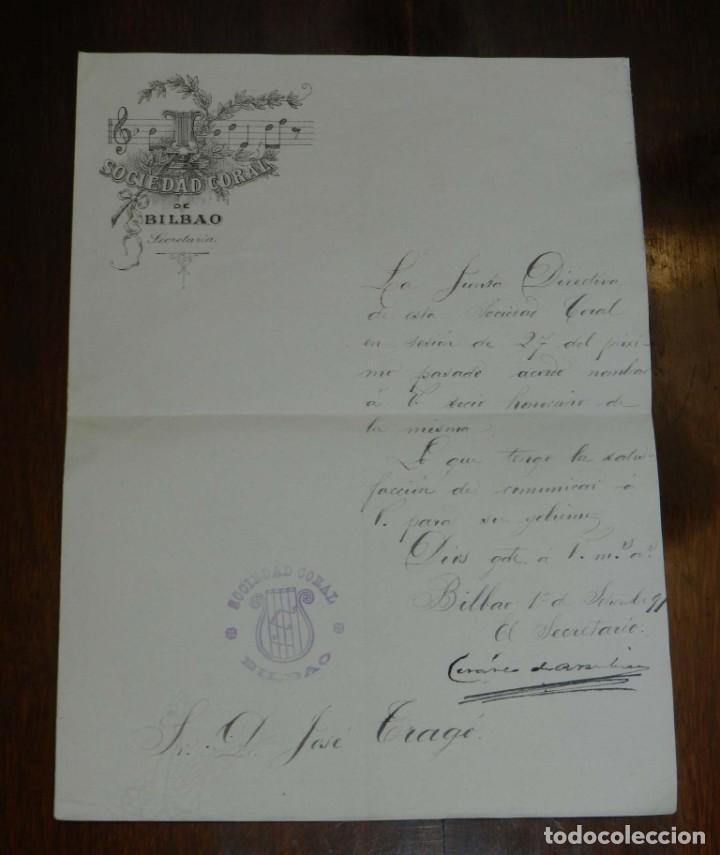 SOCIEDAD CORAL
DE
BILBAO
Secretaría.
La Junta Directiva
de esta Sociedad Coral
en sesión de 27 del próxi-
mo pasado acordó nombrar
á V. socio honorario de
la misma.
Lo que tengo la satis-
facción de comunicar á
V. para su gobierno
Dios gde á V. ms. as.
Bilbao 1º de Setembre 91
El Secretario.
SOCIEDAD CORAL
BILBAO
Sr. D. José Tragó.
todocoleccion
todocoleccion.net